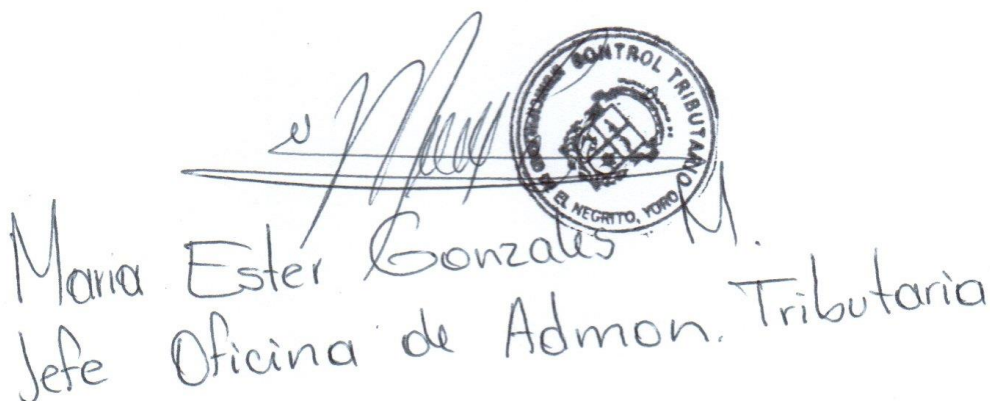 CONTROL TRIBUTARIO
EL NEGRITO, YORO
Maria Ester Gonzales M.
Jefe Oficina de Admon. Tributaria